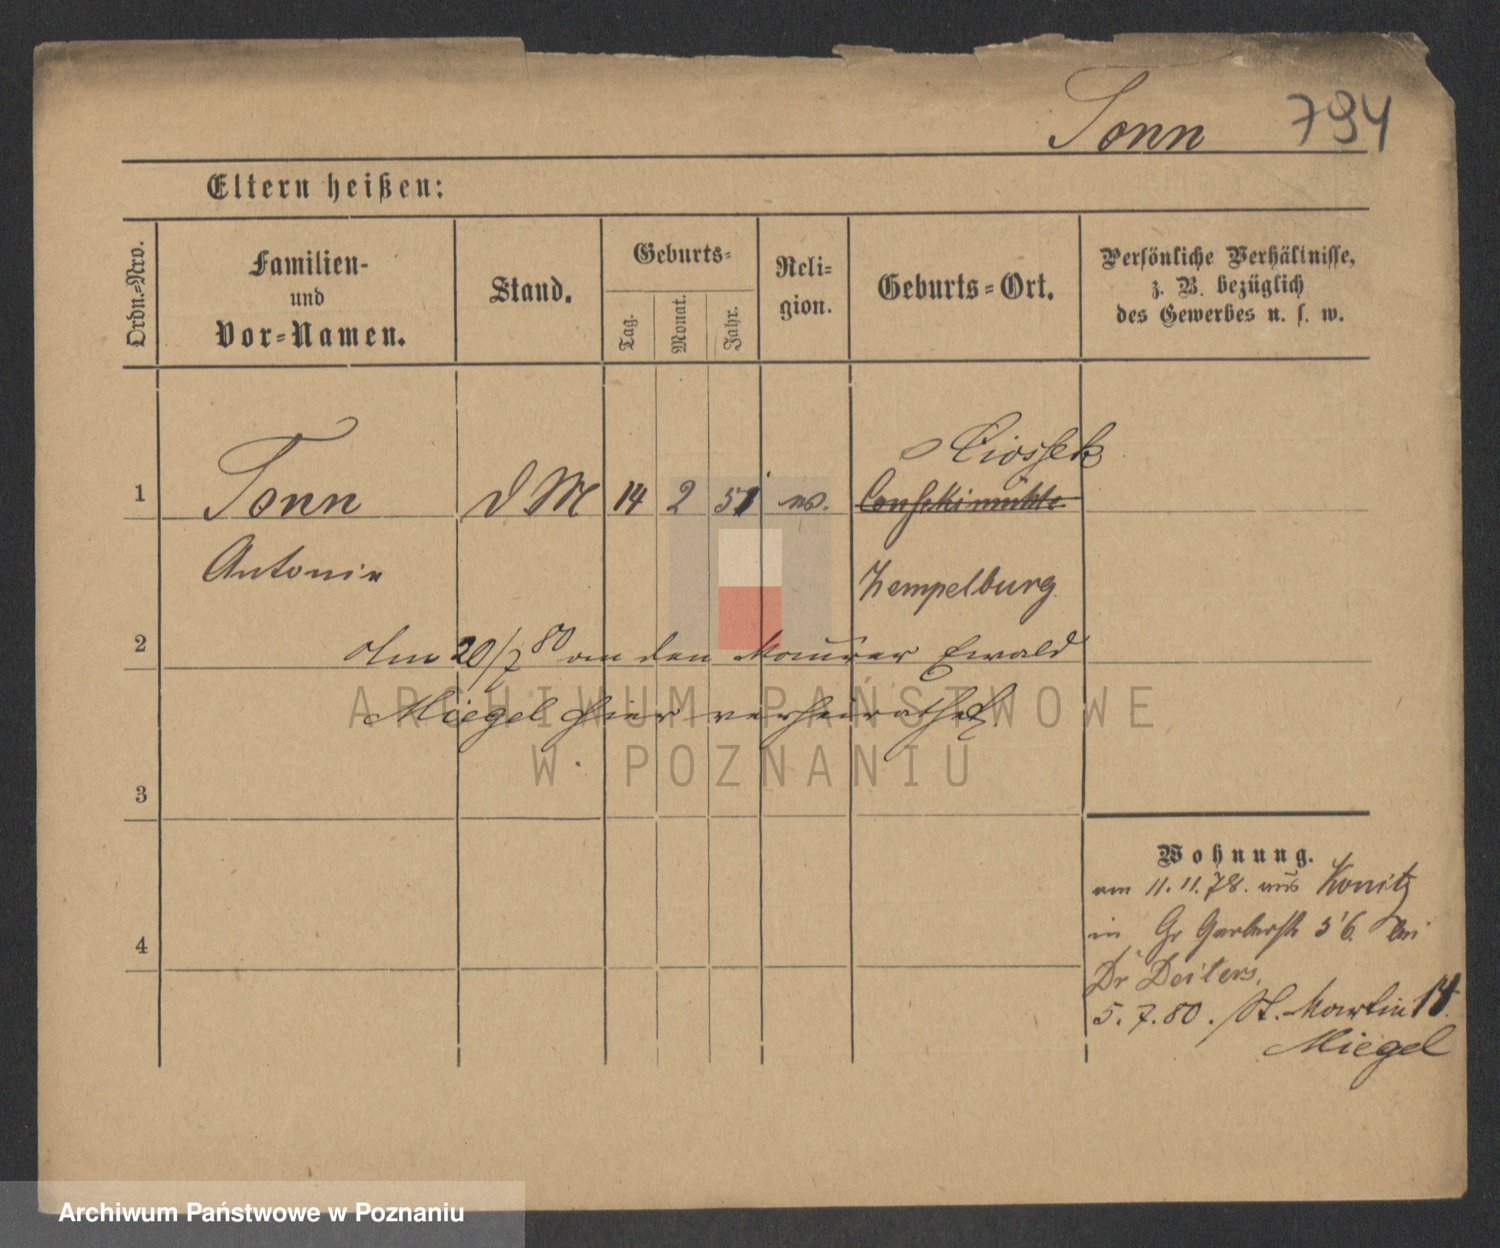 Tonn 794
Eltern heißen:
Ordn.-Nro.
Familien-
und
Vor-Namen.
Stand.
Geburts-
Tag.
Monat.
Jahr.
Reli-
gion.
Geburts-Ort.
Persönliche Verhältnisse,
z. B. bezüglich
des Gewerbes u. s. w.
1 Tonn DM 14 2 51 ev.
Antonie Zempelburg
2 Am 20/7 80 an den Maurer Ewald
Miegel hier verheirathet.
3
4
Wohnung.
am 11.11.78. aus Konitz
in Gr Gerberstr 56. bei
Dr Deiters.
5.7.80. St. Martin 14.
Miegel
ARCHIWUM PAŃSTWOWE
W POZNANIU
Archiwum Państwowe w Poznaniu